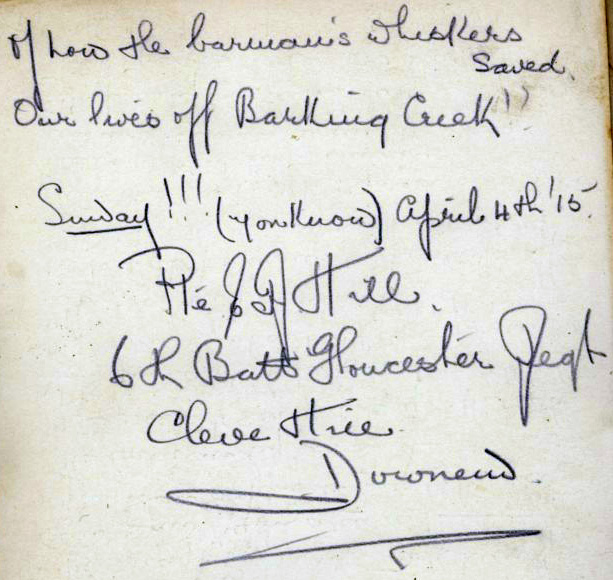 Of how the barman's whiskers
Saved.
Our lives off Barking Creek!!
Sunday!!! (you know) April 4th '15.
Pte J G Hill.
6th Batt Gloucester Regt
Cleve Hill
Downend.